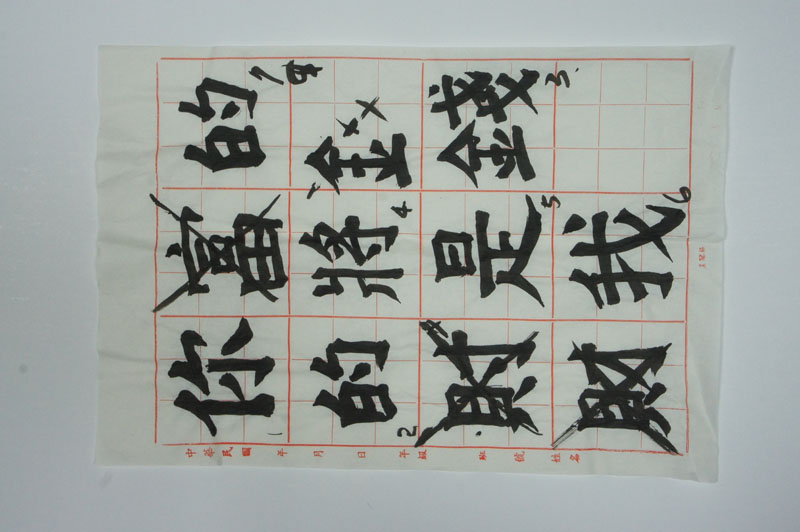 的7金錢3
富將4是5我6
你1的2財財
中華民國 年 月 日 年級 班 號 姓名